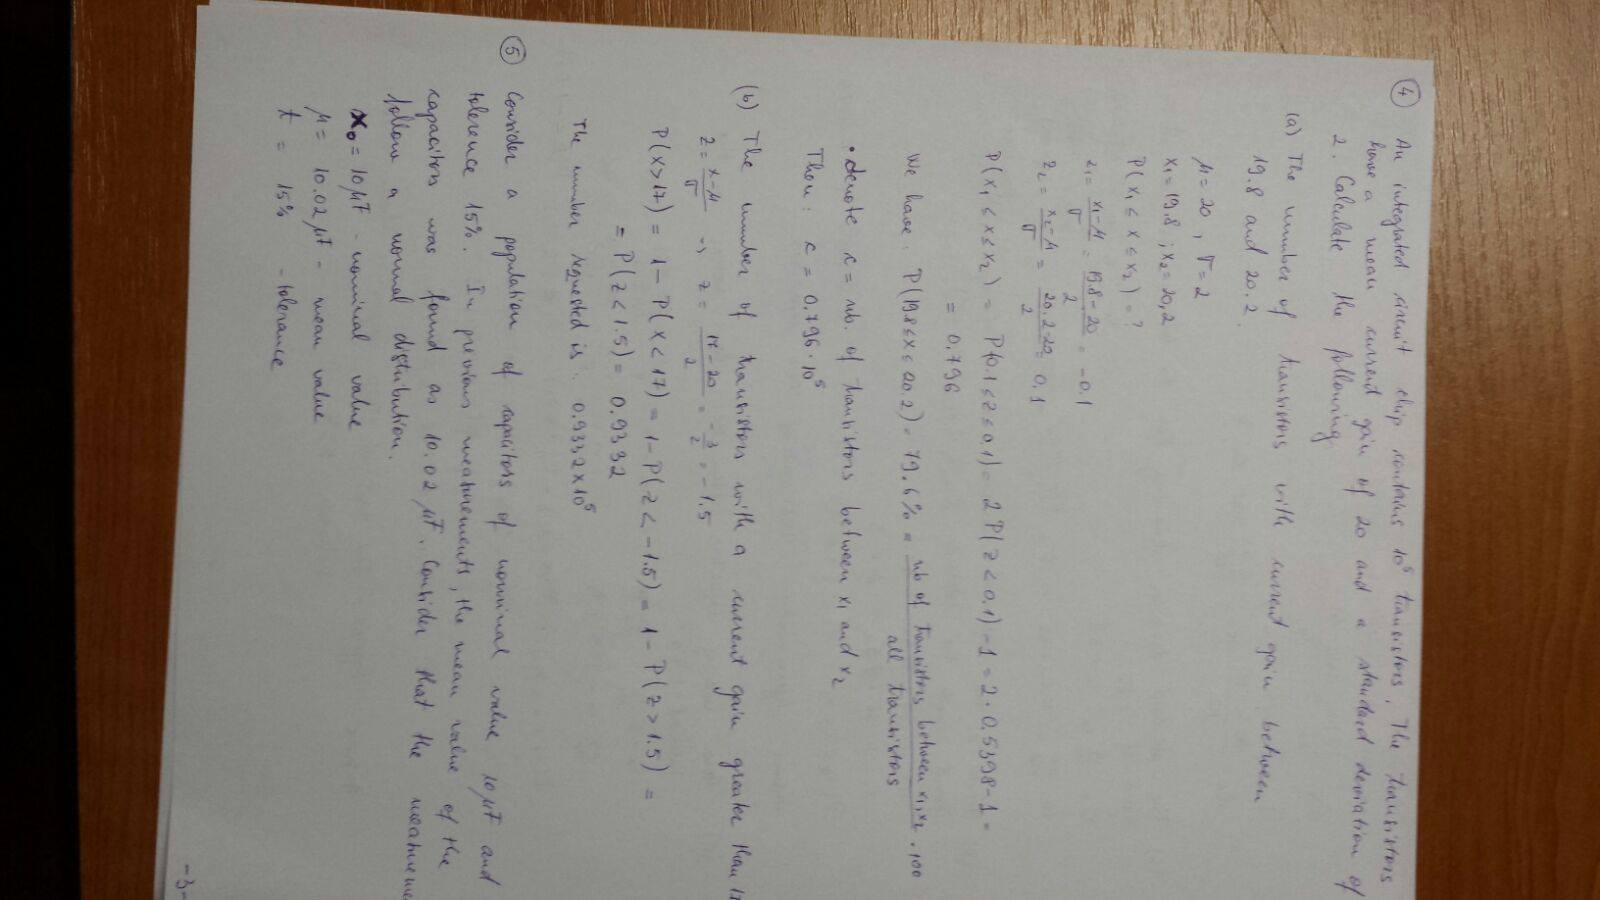 4 An integrated circuit chip contains 10⁵ transistors. The transistors
have a mean current gain of 20 and a standard deviation of
2. Calculate the following
(a) The number of transistors with current gain between
19.8 and 20.2.
μ = 20 , σ = 2
x₁ = 19.8 ; x₂ = 20,2
P(x₁ ≤ x ≤ x₂) = ?
z₁ = (x₁-μ)/σ = (19.8-20)/2 = -0.1
z₂ = (x₂-μ)/σ = (20.2-20)/2 = 0.1
P(x₁ < x ≤ x₂) = P(-0.1 ≤ z ≤ 0.1) = 2 P(z < 0.1) - 1 = 2 · 0.5398 - 1 =
= 0.796
We have: P(19.8 ≤ x ≤ 20.2) = 79.6% = (nb of transistors between x₁, x₂)/(all transistors) · 100
• denote c = nb. of transistors between x₁ and x₂
Then: c = 0.796 · 10⁵
(b) The number of transistors with a current gain greater than 17
z = (x-μ)/σ → z = (17-20)/2 = -3/2 = -1.5
P(x>17) = 1 - P(x<17) = 1 - P(z < -1.5) = 1 - P(z > 1.5) =
= P(z < 1.5) = 0.9332
The number requested is: 0.9332 × 10⁵
5 Consider a population of capacitors of nominal value 10 μF and
tolerence 15%. In previous measurements, the mean value of the
capacitors was found as 10.02 μF. Consider that the measureme
follow a normal distribution.
x₀ = 10 μF - nominal value
μ = 10.02 μF - mean value
t = 15% - tolerance
-3-